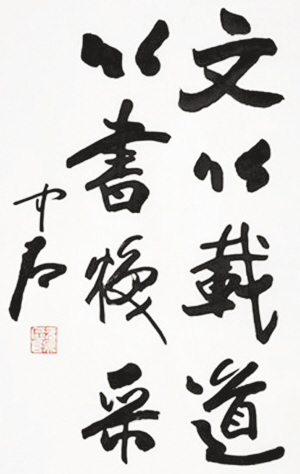 文以載道
以書煥采
中石